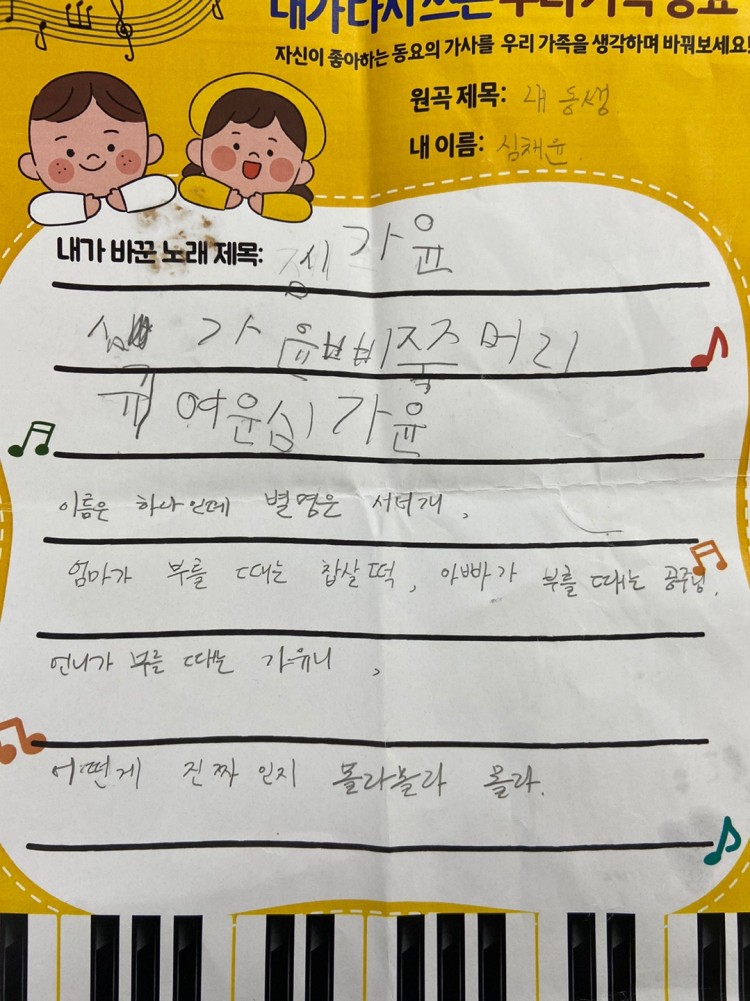 내가 다시 쓰는 우리 가족 동요
자신이 좋아하는 동요의 가사를 우리 가족을 생각하며 바꿔보세요!
원곡 제목: 내 동생
내 이름: 심채윤
내가 바꾼 노래 제목: 가윤
가 윤 줄 머리
여운 심 가윤
이름은 하나인데 별명은 서너개,
엄마가 부를 때는 찹살떡, 아빠가 부를 때는 공주님.
언니가 부를 때는 가유니,
어떤게 진짜 인지 몰라몰라 몰라.